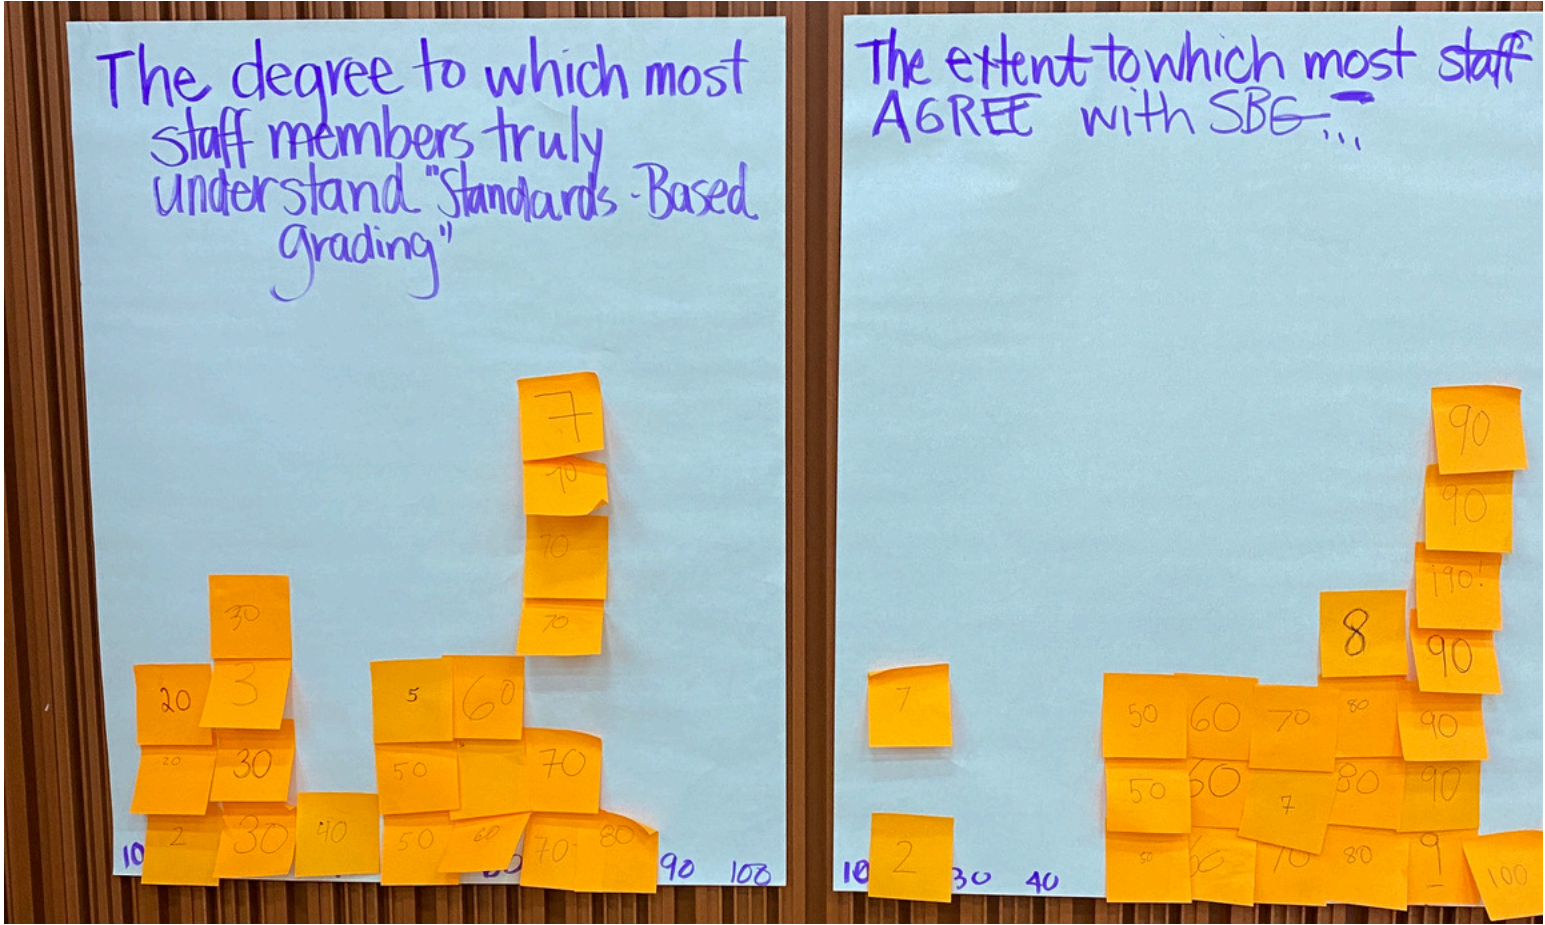 The degree to which most
staff members truly
understand "Standards-Based
grading"
7
70
70
70
30
20
3
5
60
20
30
50
70
10
2
30
40
50
60
70
80
90
100
The extent to which most staff
AGREE with SBG...
90
90
¡90!
8
90
7
50
60
70
80
90
50
60
7
80
90
10
2
30
40
50
60
70
80
9
100